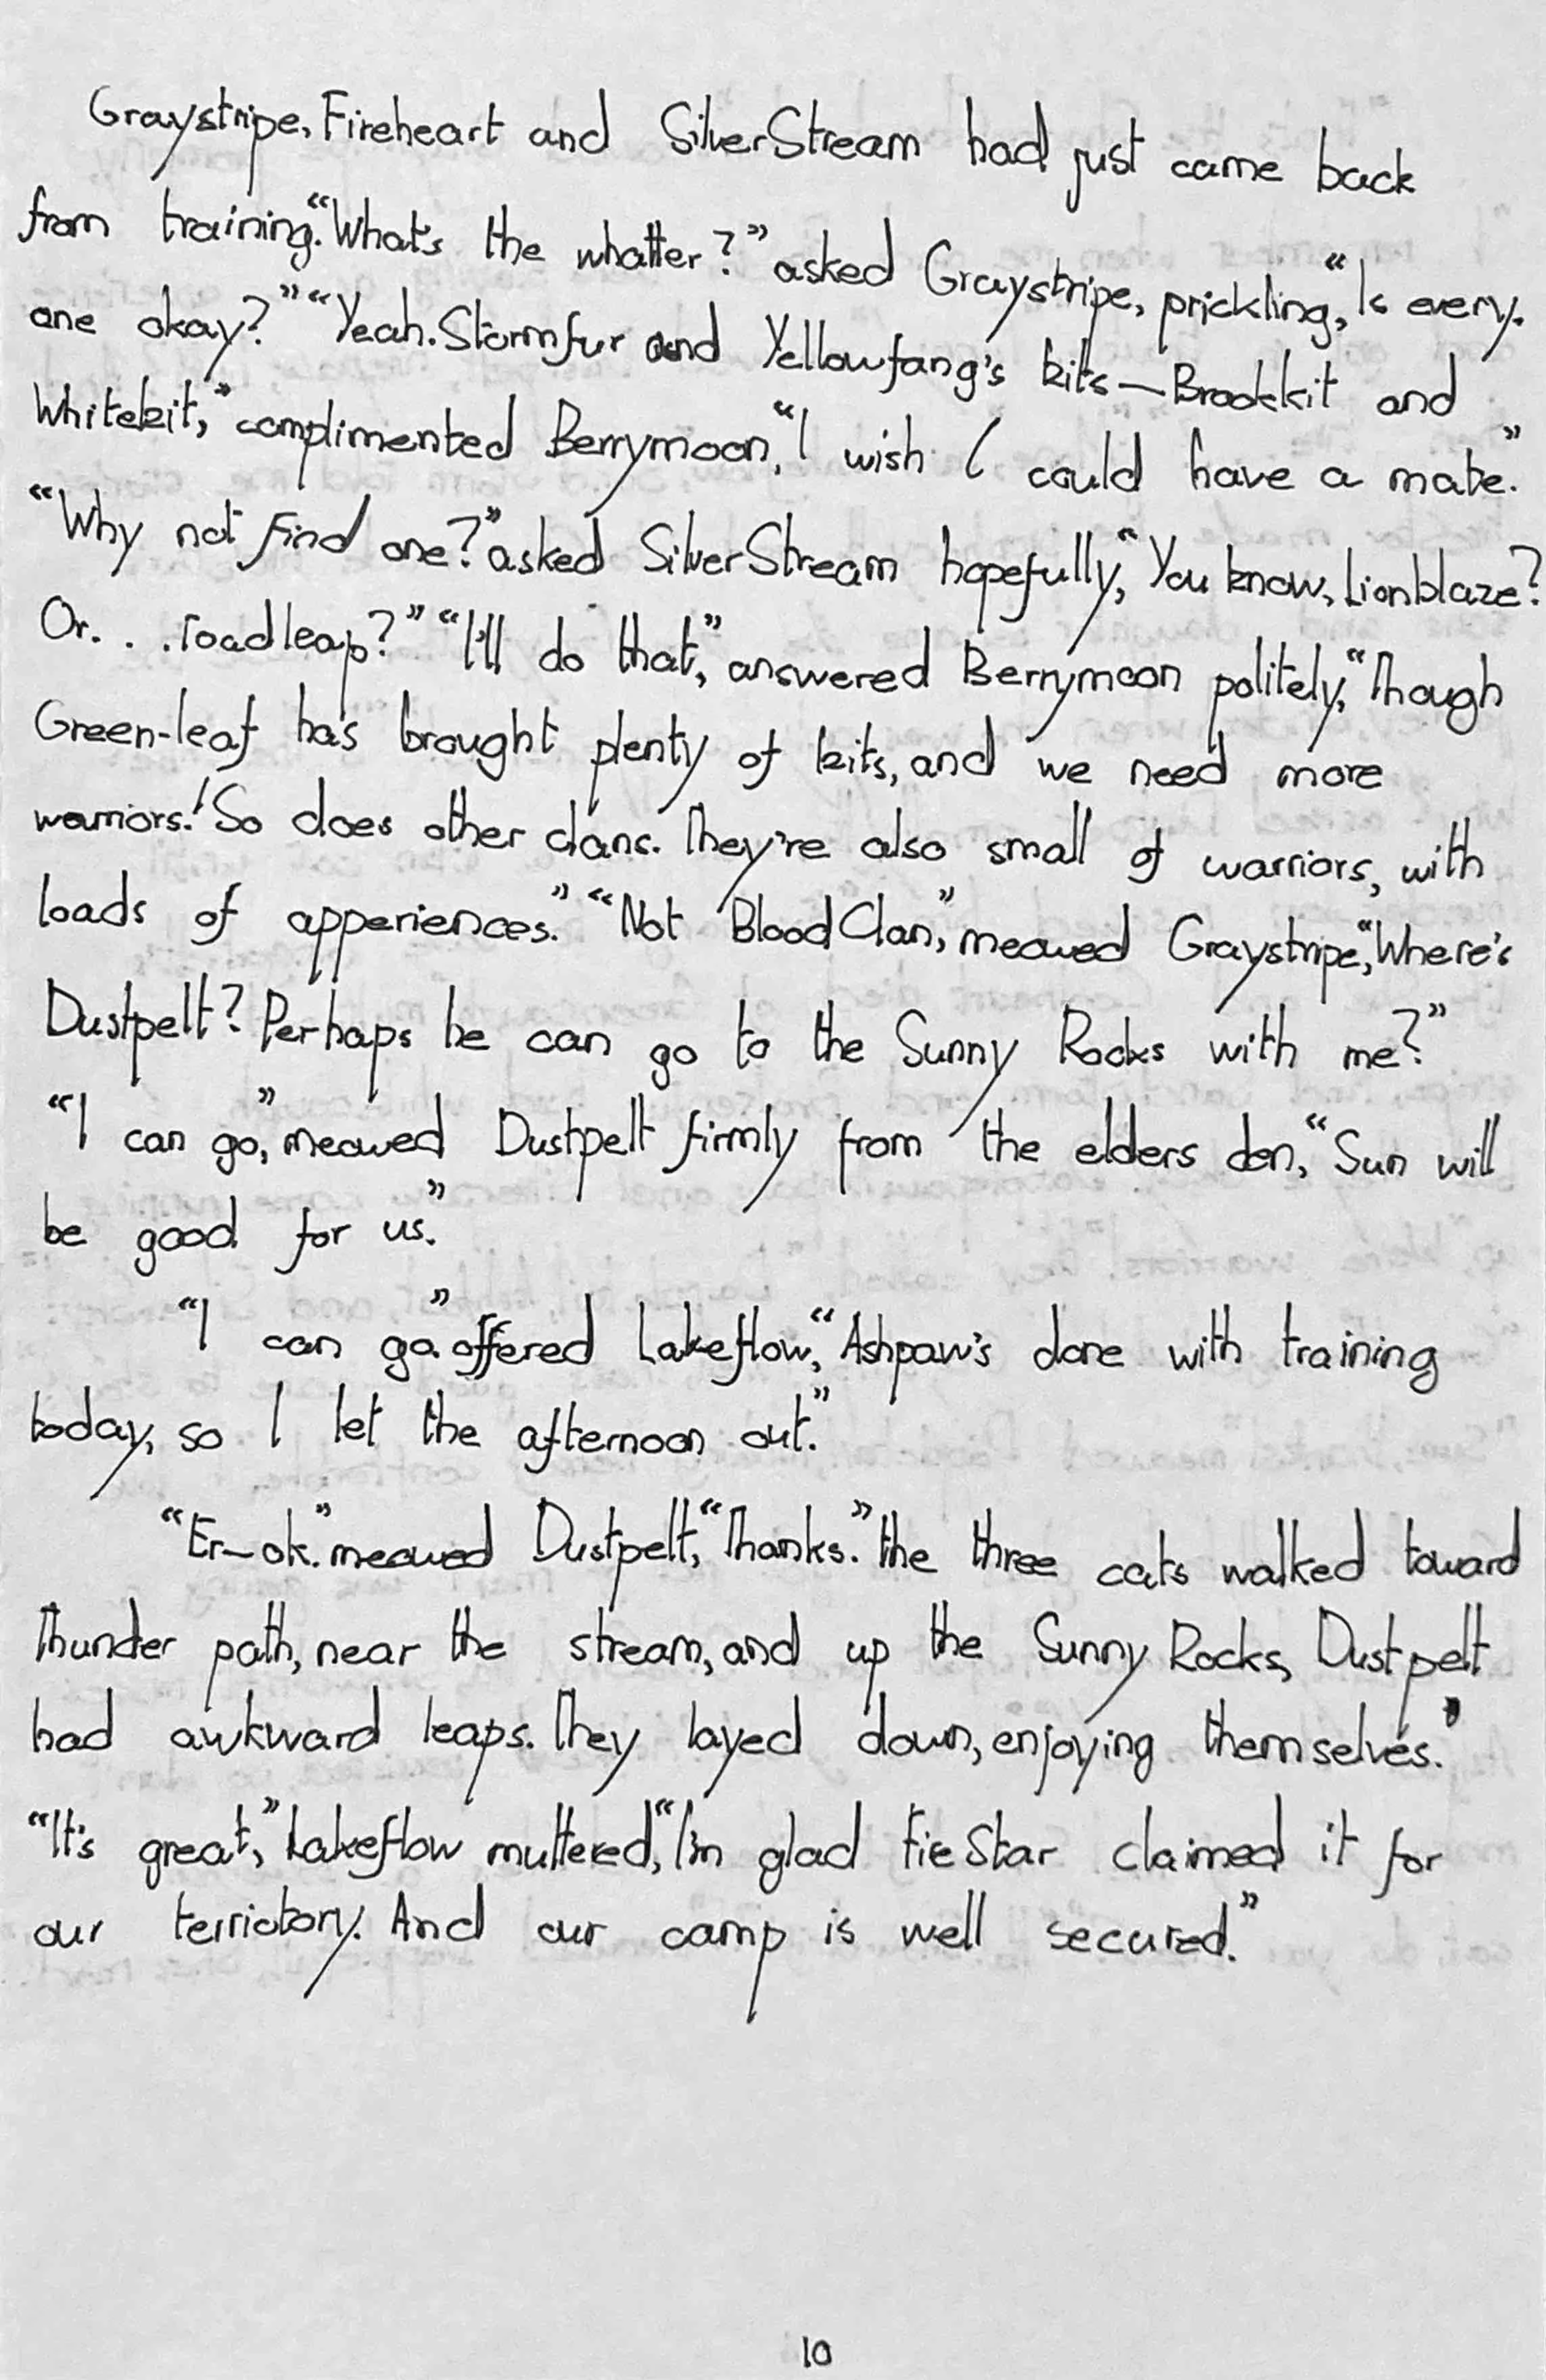 Graystripe, Fireheart and SilverStream had just came back
from training. "What's the whatter?" asked Graystripe, prickling, "Is every.
one okay?" "Yeah. Stormfur and Yellowfang's kits—Brookkit and
Whitekit," complimented Berrymoon, "I wish I could have a mate."
"Why not find one?" asked SilverStream hopefully, "You know, Lionblaze?
Or. . . Toadleap?" "I'll do that," answered Berrymoon politely, "Though
Green-leaf has brought plenty of kits, and we need more
warriors! So does other clans. They're also small of warriors, with
loads of apperiences." "Not BloodClan," meowed Graystripe, "Where's
Dustpelt? Perhaps he can go to the Sunny Rocks with me?"
"I can go," meowed Dustpelt firmly from the elders den, "Sun will
be good for us."
"I can go." offered Lakeflow, "Ashpaw's done with training
today, so I let the afternoon out."
"Er—ok." meowed Dustpelt, "Thanks." the three cats walked toward
Thunder path, near the stream, and up the Sunny Rocks, Dustpelt
had awkward leaps. They layed down, enjoying themselves."
"It's great," Lakeflow muttered, "I'm glad FireStar claimed it for
our terrictory. And our camp is well secured."
10